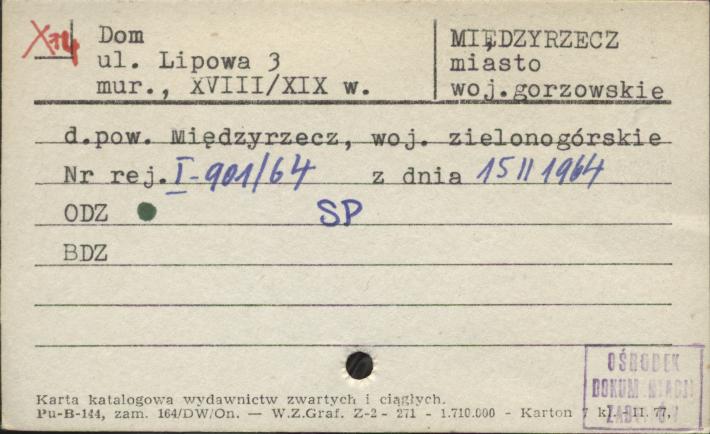 X 14 Dom MIĘDZYRZECZ
ul. Lipowa 3 miasto
mur., XVIII/XIX w. woj.gorzowskie
d.pow. Międzyrzecz, woj. zielonogórskie
Nr rej. I-901/64 z dnia 15 II 1964
ODZ SP
BDZ
OŚRODEK
DOKUMENTACJI
ZABYTKÓW
Karta katalogowa wydawnictw zwartych i ciągłych.
Pu-B-144, zam. 164/DW/On. — W.Z.Graf. Z-2 - 271 - 1.710.000 - Karton 7 kl. III. 77.